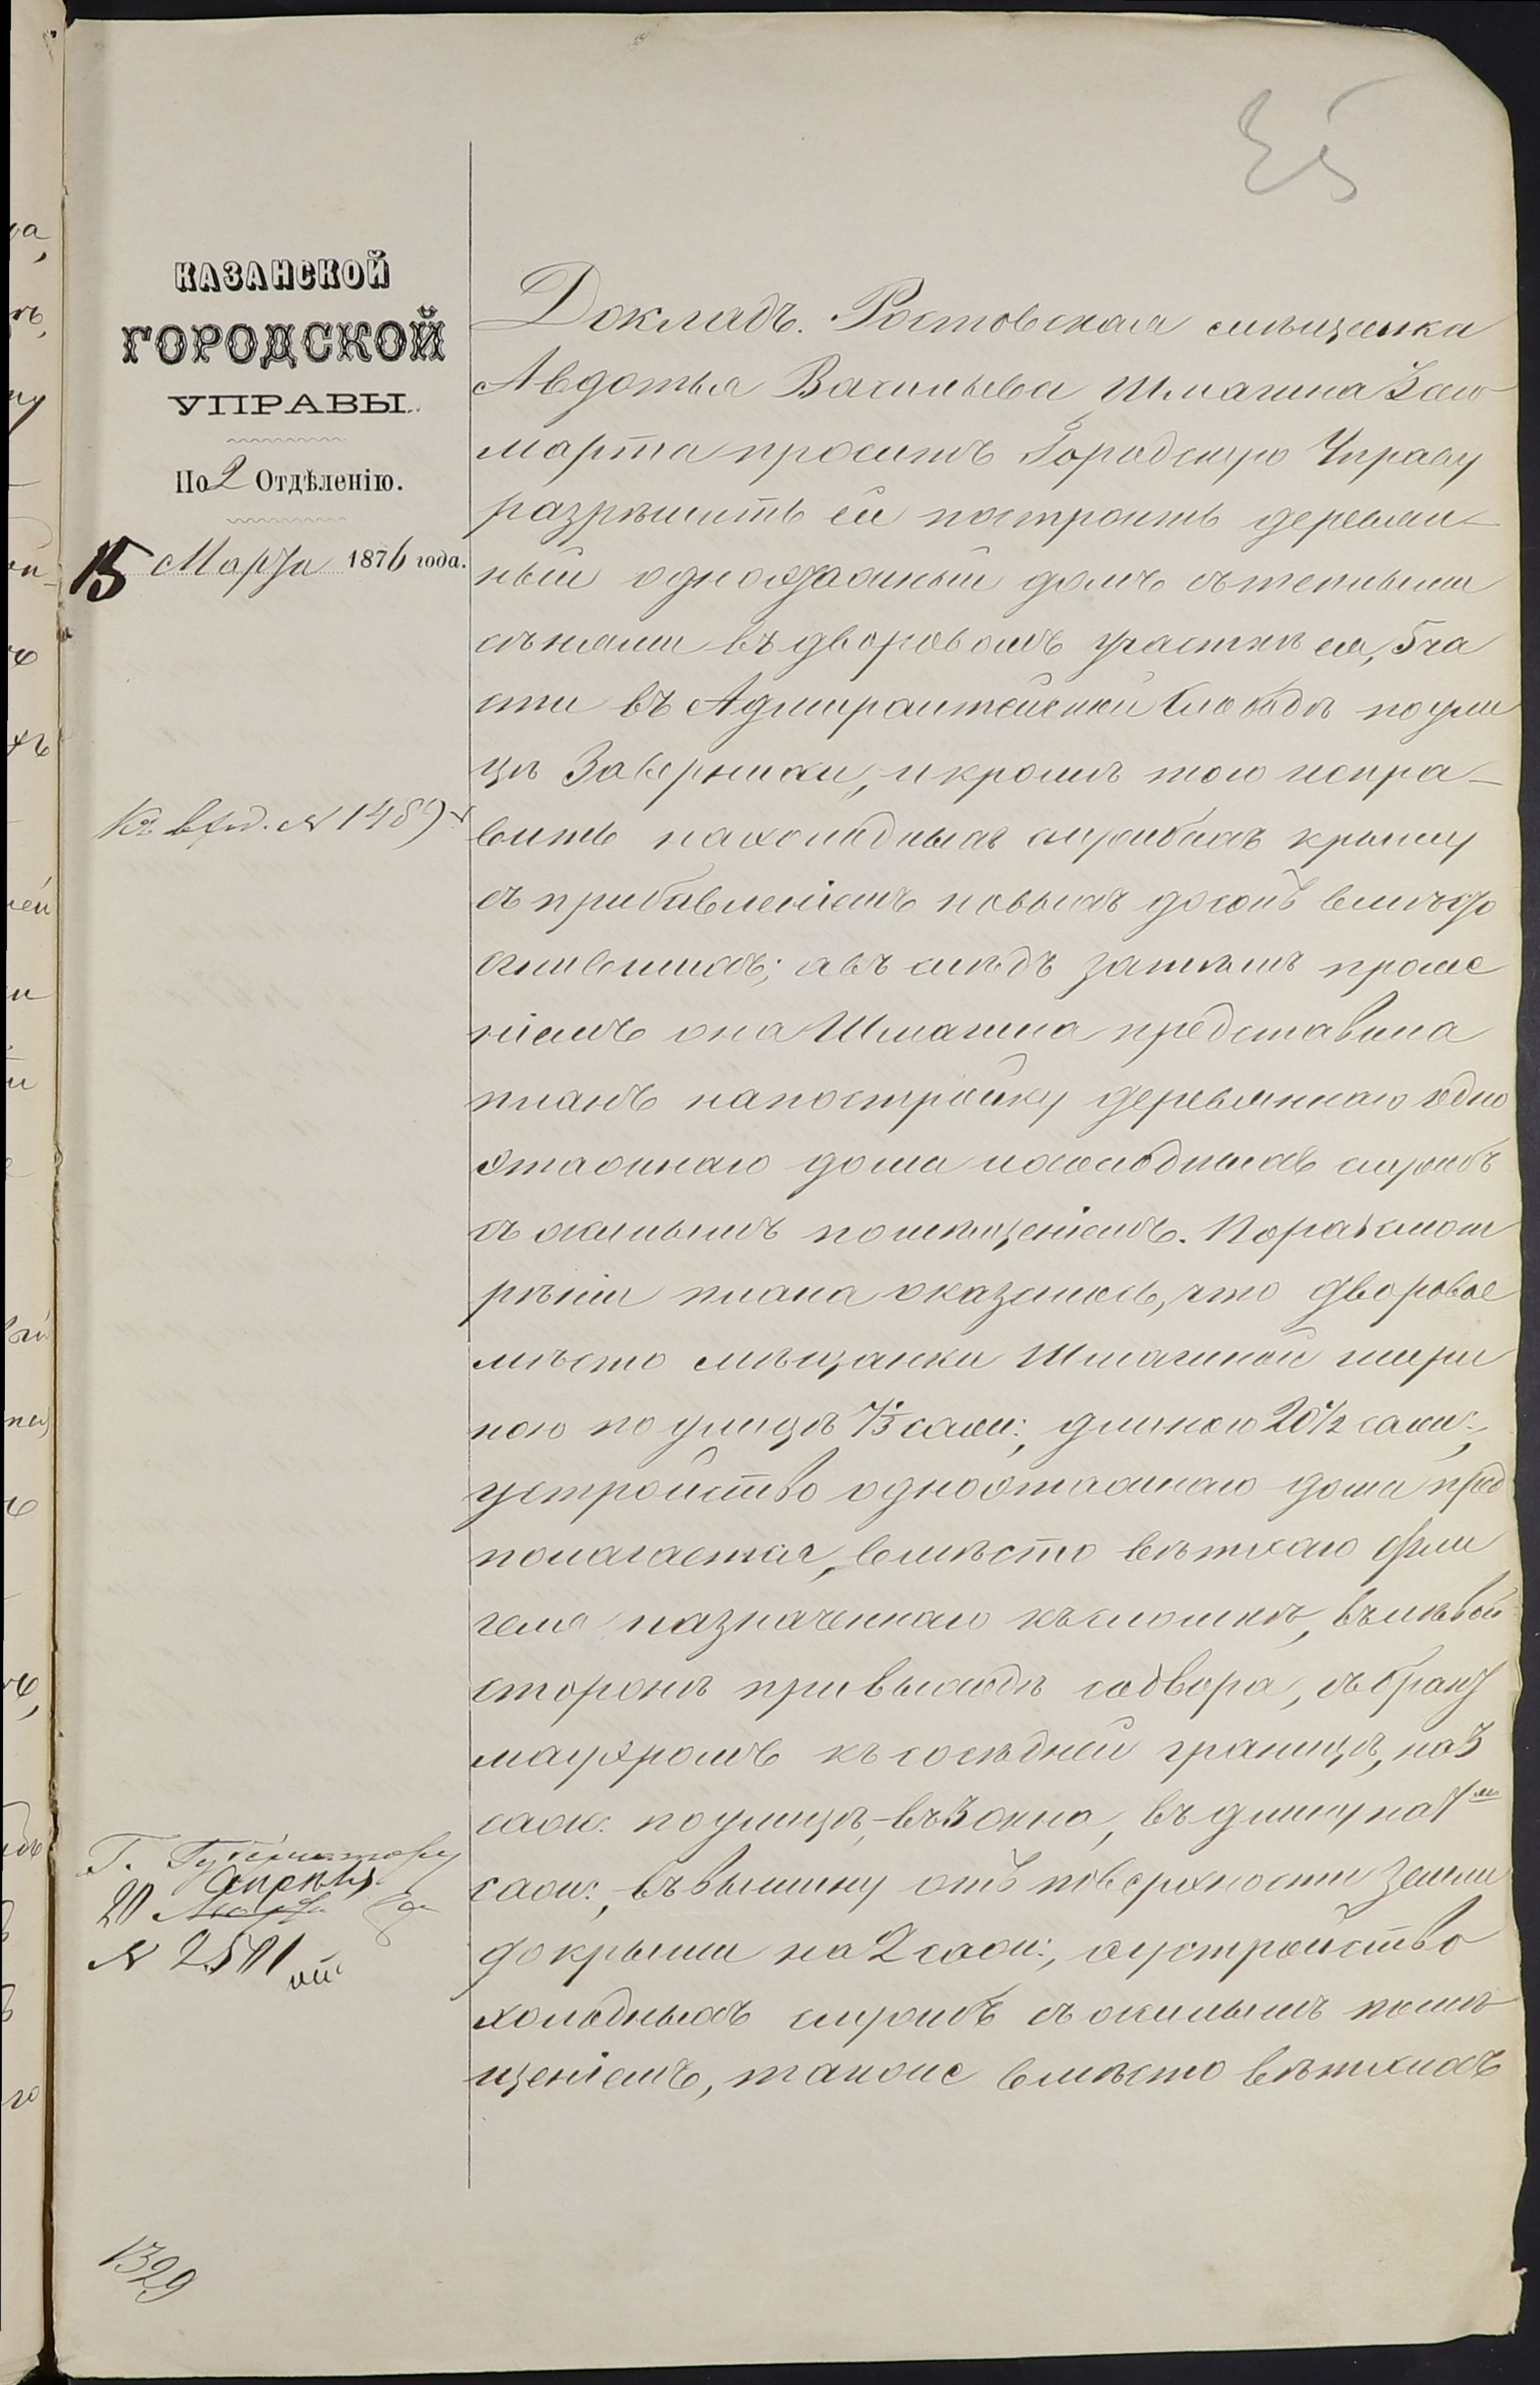 КАЗАНСКОЙ
ГОРОДСКОЙ
УПРАВЫ.
По 2 Отдѣленію.
15 Марта 1876 года.
Къ вход. № 1489
Г. Губернатору
апрѣля
20 Марта
№ 2501
1329
Докладъ. Ростовская мѣщанка
Авдотья Васильева Шмагина 3 сего
марта проситъ Городскую Управу
разрѣшить ей построить деревян-
ный одноэтажный домъ съ теплыми
сѣнями въ дворовомъ участкѣ ея, 5 ча
сти въ Адмиралтейской слободѣ по ули
цѣ Завернихи, и кромѣ того испра-
вить на холодныхъ службахъ крышу
съ прибавленіемъ новыхъ досокъ вмѣсто
сгнившихъ; а въ слѣдъ затѣмъ проше
ніемъ она Шмагина представила
планъ на постройку деревяннаго одно
этажнаго дома и холодныхъ службъ
съ жилымъ помѣщеніемъ. По разсмот
рѣніи плана оказалось, что дворовое
мѣсто мѣщанки Шмагиной шири
ною по улицѣ саж:, длиною 20 1/2 саж:,
устройство одноэтажнаго дома пред
полагается, вмѣсто ветхаго фли
геля назначеннаго къ сломкѣ, въ лѣвой
сторонѣ при выходѣ со двора, съ бранд
мауэромъ къ сосѣдней границѣ, на 3
саж. по улицѣ, въ 3 окна, въ длину на
саж:, въ вышину отъ поверхности земли
до крыши на 2 саж:, а устройство
холодныхъ службъ съ жилымъ помѣ
щеніемъ, также вмѣсто ветхихъ